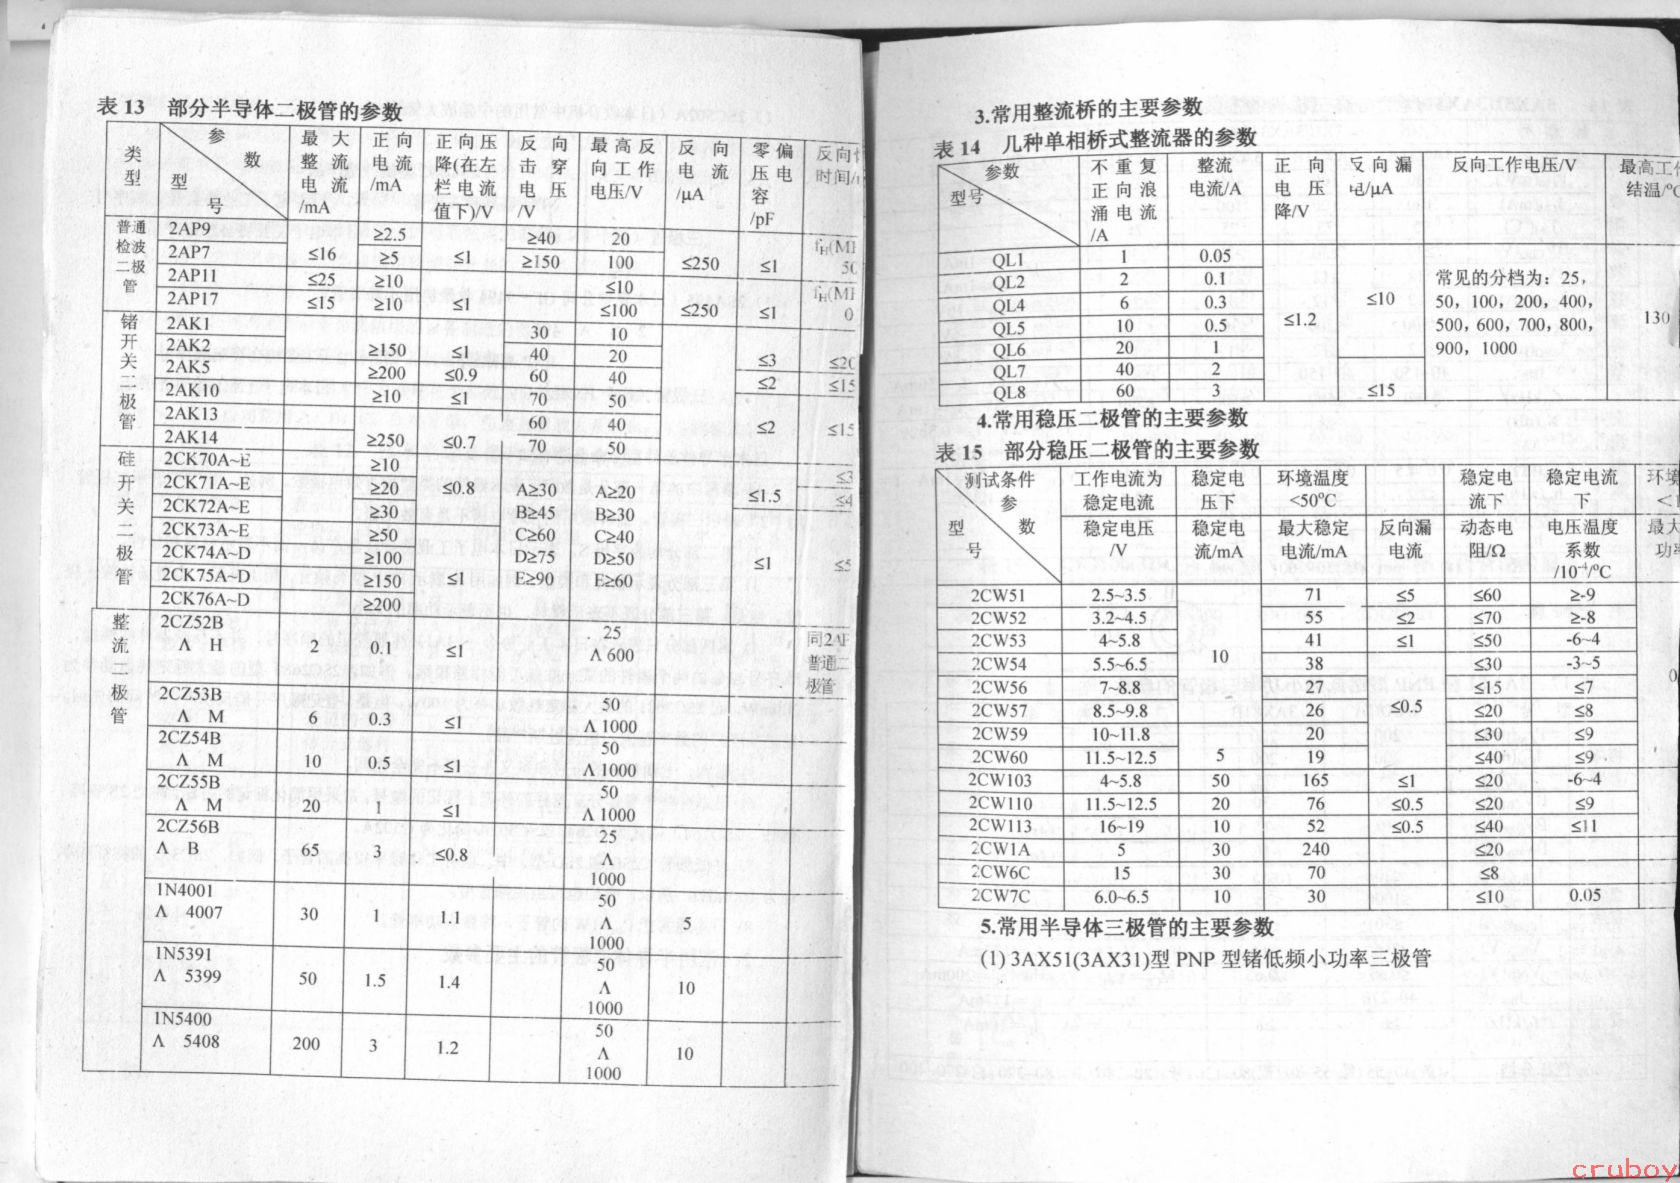 表 13 部分半导体二极管的参数
类型 参数 型号 最大整流电流/mA 正向电流/mA 正向压降(在左栏电流值下)/V 反向击穿电压/V 最高反向工作电压/V 反向电流/μA 零偏压电容/pF 反向 时间/
普通检波二极管
2AP9 ≤16 ≥2.5 ≤1 ≥40 20 ≤250 ≤1
2AP7 ≥5 ≥150 100
2AP11 ≤25 ≥10 ≤1 ≤10 ≤250 ≤1
2AP17 ≤15 ≥10 ≤100
锗开关二极管
2AK1 ≥150 ≤1 30 10 ≤3
2AK2 40 20
2AK5 ≥200 ≤0.9 60 40 ≤2 ≤15
2AK10 ≥10 ≤1 70 50
2AK13 ≥250 ≤0.7 60 40 ≤2 ≤15
2AK14 70 50
硅开关二极管
2CK70A~E ≥10 ≤0.8 A≥30 A≥20 ≤1.5
2CK71A~E ≥20 B≥45 B≥30
2CK72A~E ≥30 C≥60 C≥40
2CK73A~E ≥50 ≤1 D≥75 D≥50 ≤1 ≤5
2CK74A~D ≥100 E≥90 E≥60
2CK75A~D ≥150
2CK76A~D ≥200
整流二极管
2CZ52B
Λ H 2 0.1 ≤1 25 Λ 600 同2AP 普通二极管
2CZ53B
Λ M 6 0.3 ≤1 50 Λ 1000
2CZ54B
Λ M 10 0.5 ≤1 50 Λ 1000
2CZ55B
Λ M 20 1 ≤1 50 Λ 1000
2CZ56B
Λ B 65 3 ≤0.8 25 Λ 1000
1N4001
Λ 4007 30 1 1.1 50 Λ 1000 5
1N5391
Λ 5399 50 1.5 1.4 50 Λ 1000 10
1N5400
Λ 5408 200 3 1.2 50 Λ 1000 10
3.常用整流桥的主要参数
表 14 几种单相桥式整流器的参数
参数 型号 不重复正向浪涌电流/A 整流电流/A 正向电压降/V 反向漏电/μA 反向工作电压/V 最高工作结温/℃
QL1 1 0.05 ≤1.2 ≤10 常见的分档为：25，50，100，200，400，500，600，700，800，900，1000 130
QL2 2 0.1
QL4 6 0.3
QL5 10 0.5
QL6 20 1
QL7 40 2 ≤15
QL8 60 3
4.常用稳压二极管的主要参数
表 15 部分稳压二极管的主要参数
测试条件 工作电流为稳定电流 稳定电压下 环境温度<50℃ 稳定电流下 稳定电流下 环境
参数 型号 稳定电压/V 稳定电流/mA 最大稳定电流/mA 反向漏电流 动态电阻/Ω 电压温度系数/10⁻⁴/℃ 最大
2CW51 2.5~3.5 10 71 ≤5 ≤60 ≥-9
2CW52 3.2~4.5 55 ≤2 ≤70 ≥-8
2CW53 4~5.8 41 ≤1 ≤50 -6~4
2CW54 5.5~6.5 38 ≤0.5 ≤30 -3~5
2CW56 7~8.8 27 ≤15 ≤7
2CW57 8.5~9.8 5 26 ≤20 ≤8
2CW59 10~11.8 20 ≤30 ≤9
2CW60 11.5~12.5 19 ≤40 ≤9
2CW103 4~5.8 50 165 ≤1 ≤20 -6~4
2CW110 11.5~12.5 20 76 ≤0.5 ≤20 ≤9
2CW113 16~19 10 52 ≤0.5 ≤40 ≤11
2CW1A 5 30 240 ≤20
2CW6C 15 30 70 ≤8
2CW7C 6.0~6.5 10 30 ≤10 0.05
5.常用半导体三极管的主要参数
(1) 3AX51(3AX31)型 PNP 型锗低频小功率三极管
cruboy